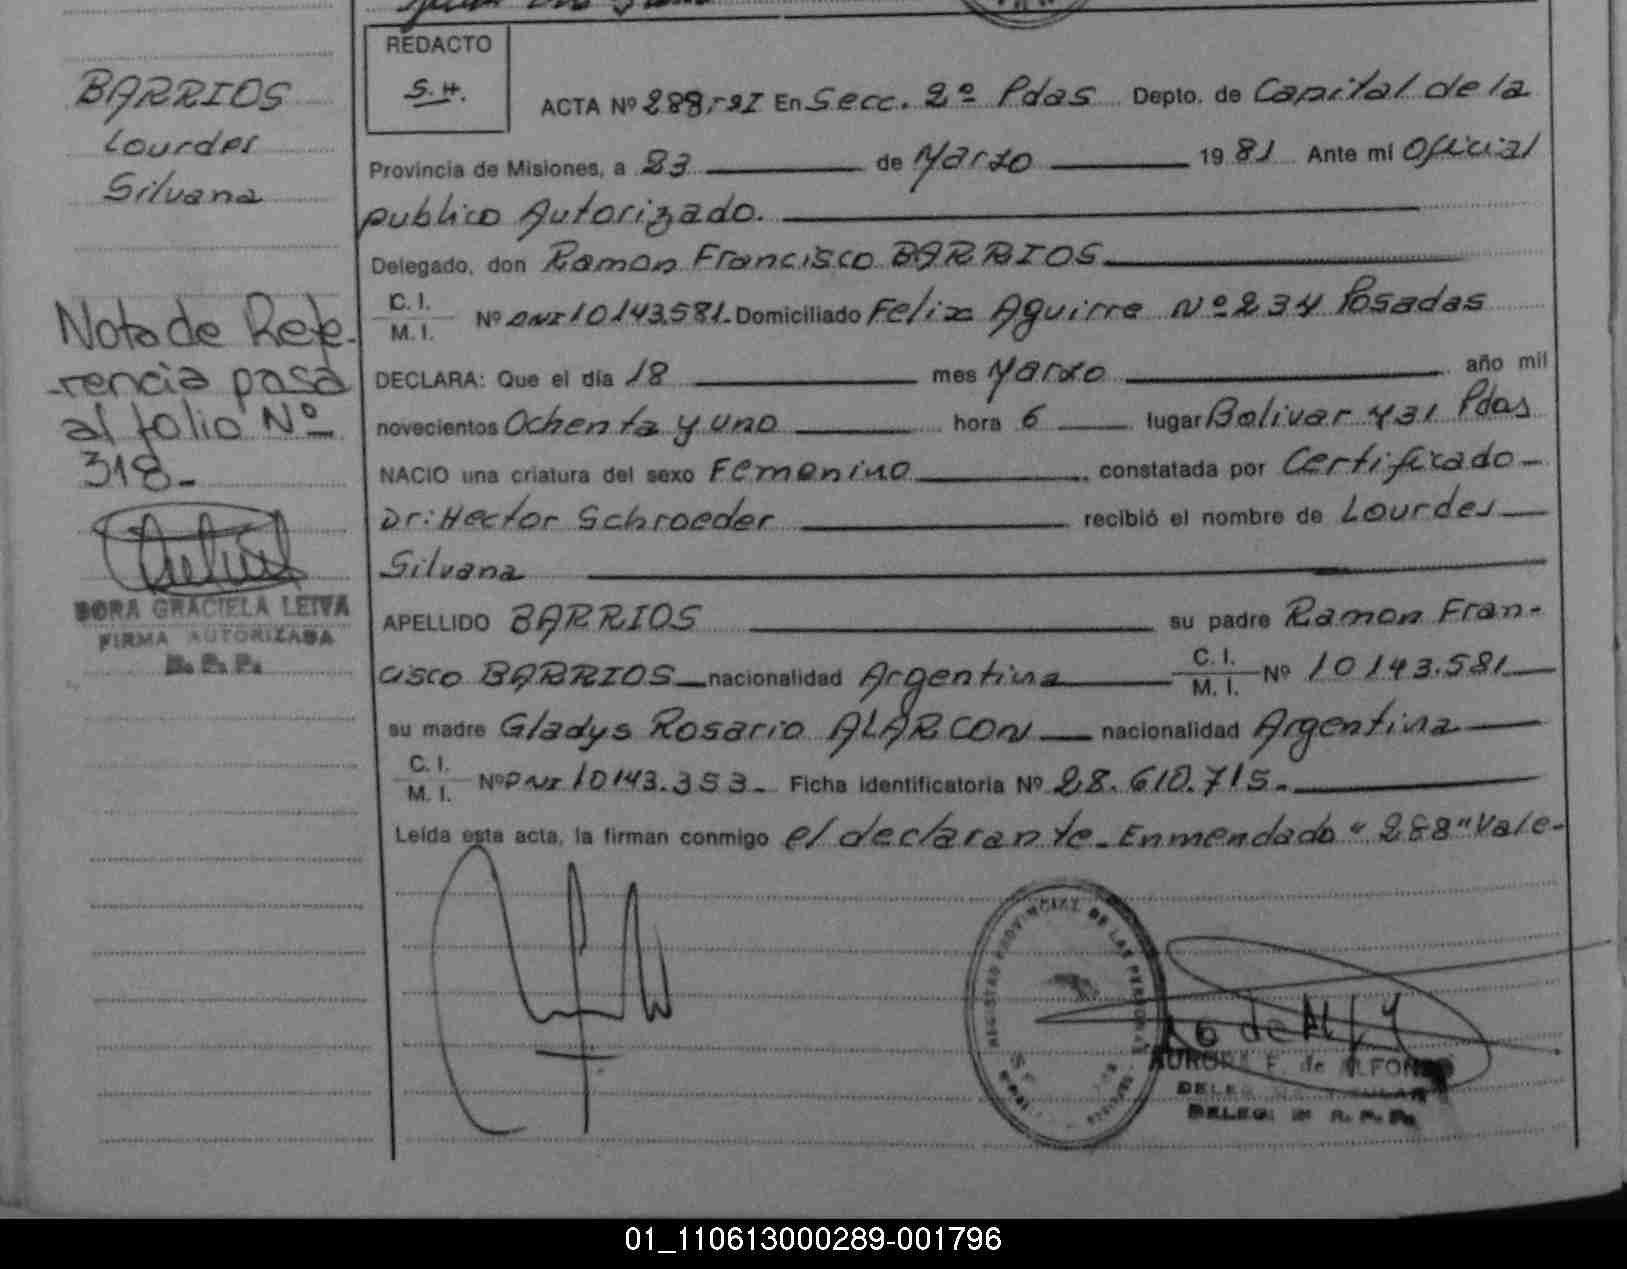 REDACTO
S.H.
BARRIOS
Lourdes
Silvana
ACTA Nº 288,-TºI En Secc. 2º Pdas Depto. de Capital de la
Provincia de Misiones, a 23 de Marzo 1981 Ante mí Oficial
publico Autorizado.
Delegado, don Ramon Francisco BARRIOS
C. I.
M. I. Nº DNI 10143.581. Domiciliado Felix Aguirre Nº 234 Posadas
DECLARA: Que el día 18 mes Marzo año mil
novecientos Ochenta y uno hora 6 lugar Bolivar 431 Pdas
NACIO una criatura del sexo Femenino, constatada por Certificado
Dr: Hector Schroeder recibió el nombre de Lourdes
Silvana
APELLIDO BARRIOS su padre Ramon Fran-
cisco BARRIOS nacionalidad Argentina C. I.
M. I. Nº 10143.581
su madre Gladys Rosario ALARCON nacionalidad Argentina
C. I.
M. I. Nº DNI 10143.353. Ficha Identificatoria Nº 28.610.715.
Leída esta acta, la firman conmigo el declarante. Enmendado "288" Vale.
Nota de Refe-
rencia pasa
al folio Nº
318-
DORA GRACIELA LEIVA
FIRMA AUTORIZADA
R. P. P.
REGISTRO PROVINCIAL DE LAS PERSONAS
AURORA F. de ALFONSO
DELEG. TITULAR
DELEG. 2ª R. P. P.
01_110613000289-001796